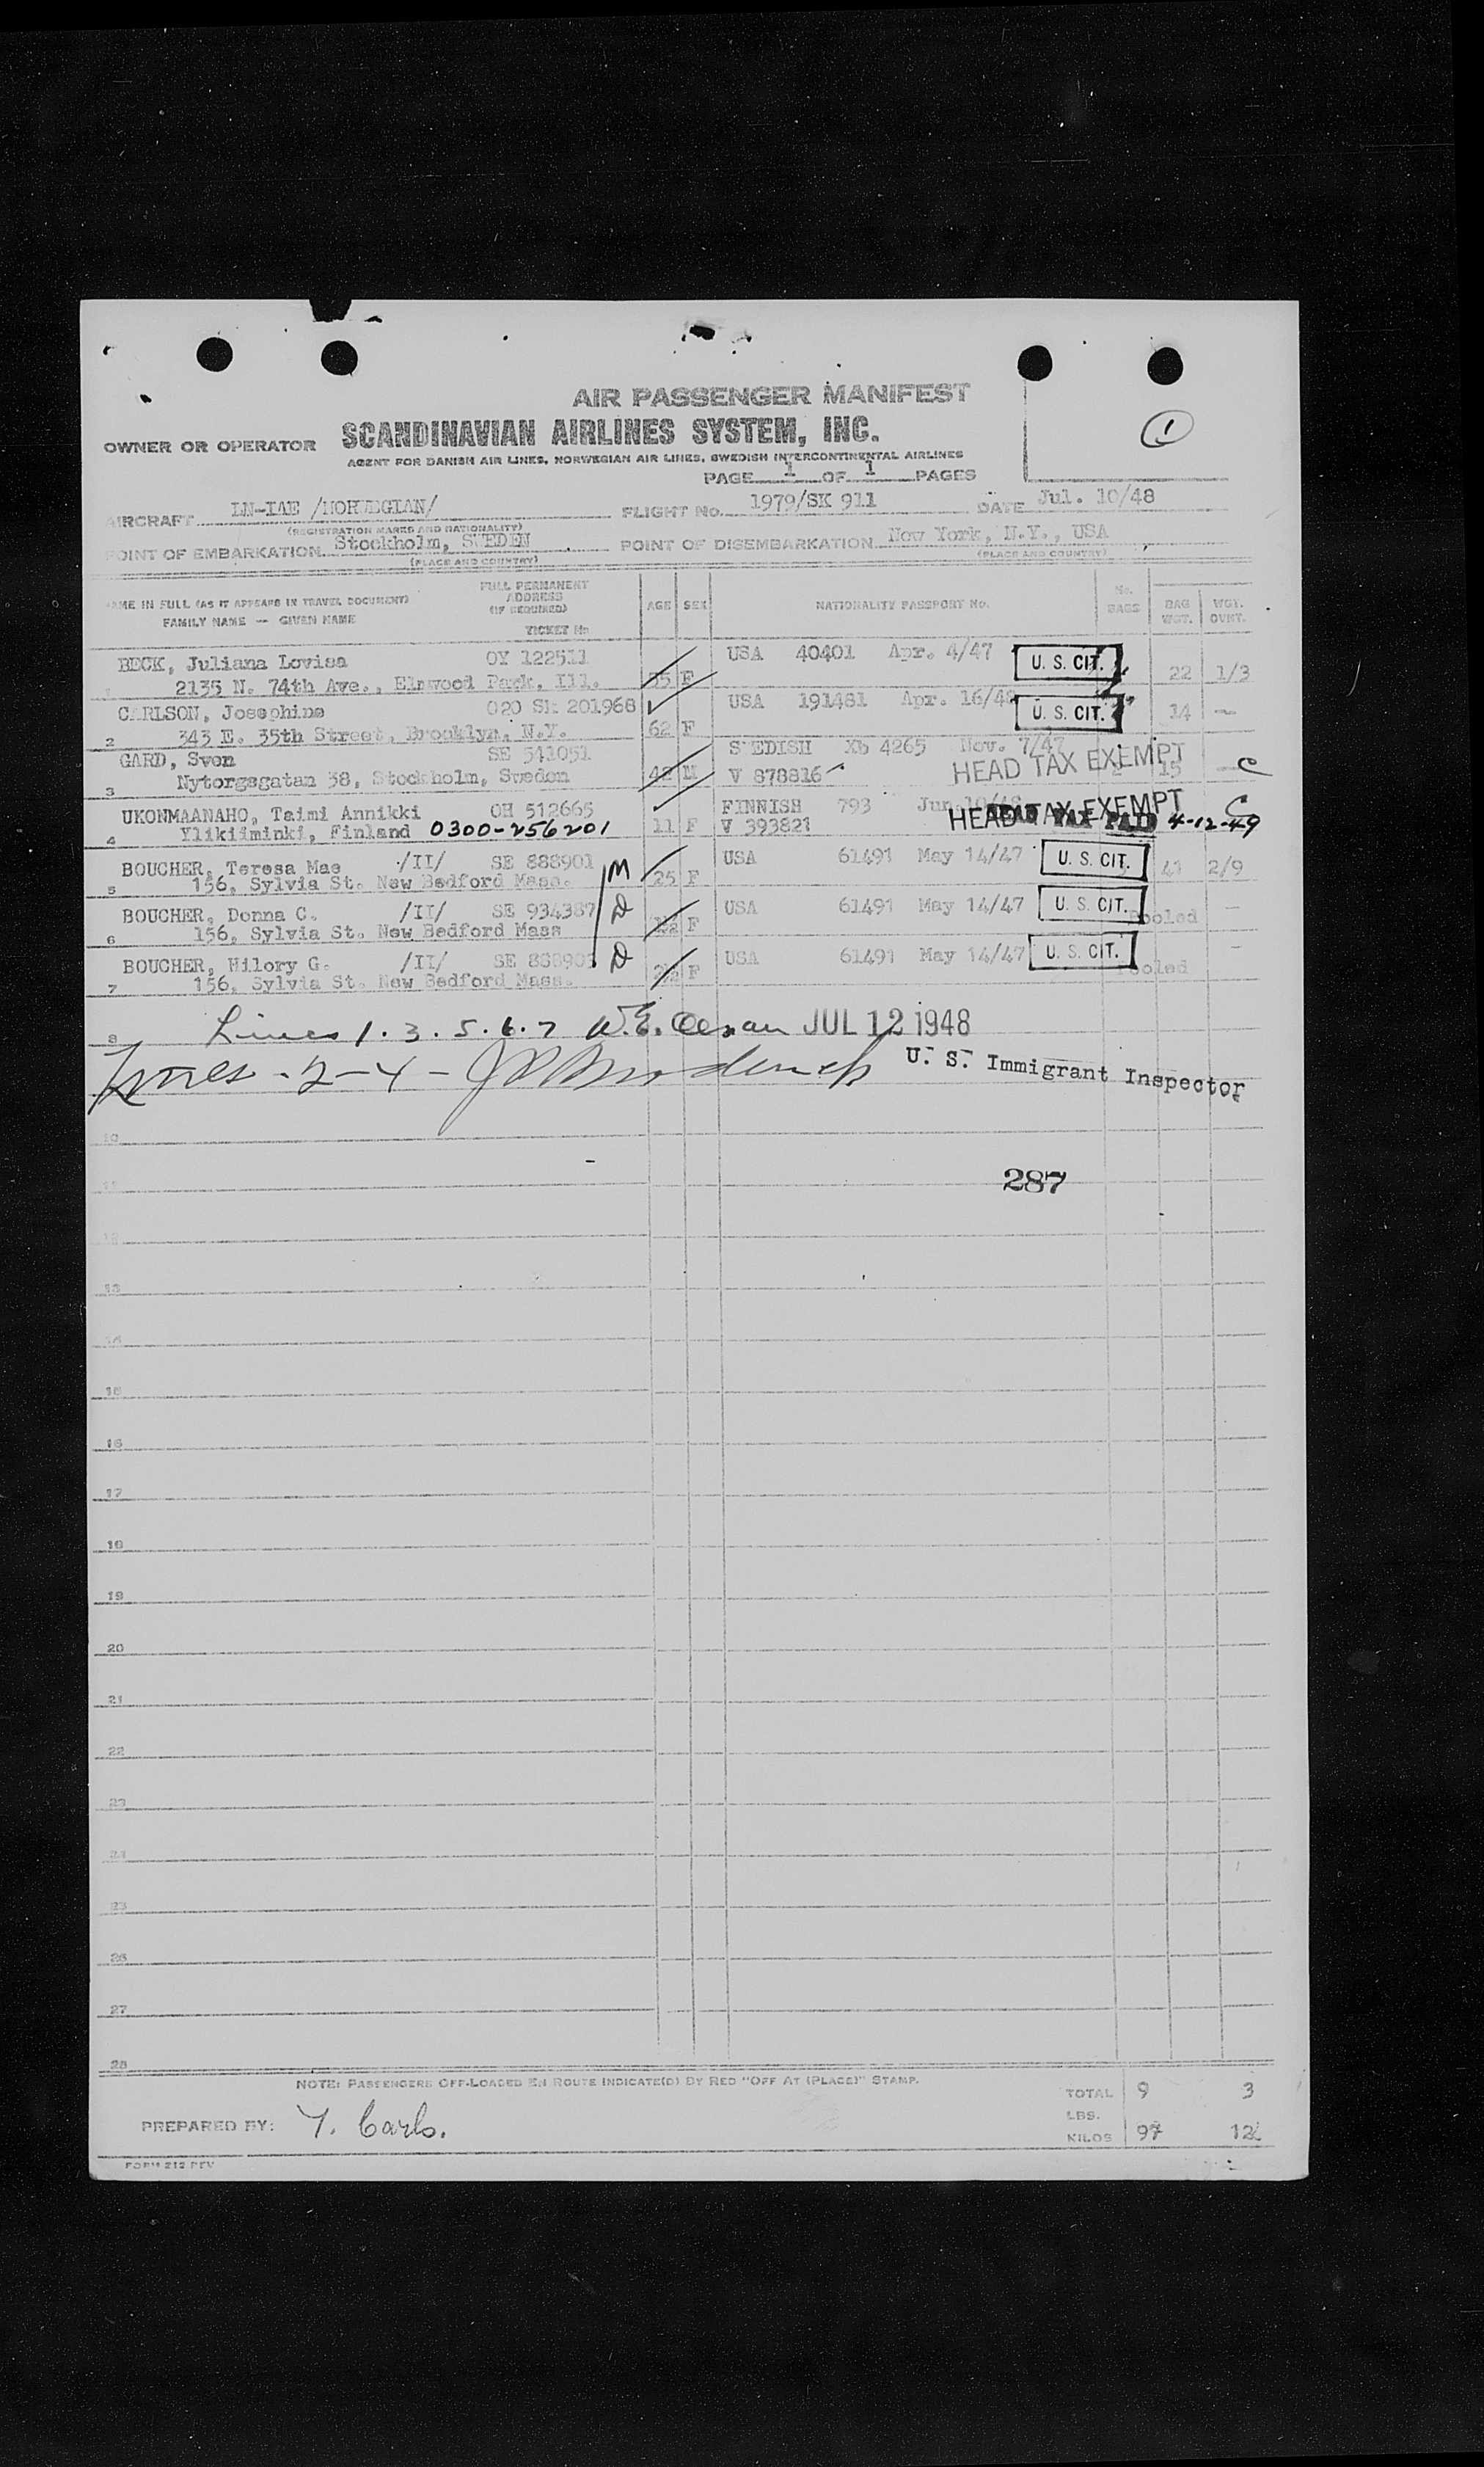 AIR PASSENGER MANIFEST
1
OWNER OR OPERATOR SCANDINAVIAN AIRLINES SYSTEM, INC.
AGENT FOR DANISH AIR LINES, NORWEGIAN AIR LINES, SWEDISH INTERCONTINENTAL AIRLINES
PAGE 1 OF 1 PAGES
AIRCRAFT LN-IAE /NORWEGIAN/ FLIGHT No. 1979/SK 911 DATE Jul. 10/48
(REGISTRATION MARKS AND NATIONALITY)
POINT OF EMBARKATION Stockholm, SWEDEN POINT OF DISEMBARKATION New York, N.Y., USA
(PLACE AND COUNTRY) (PLACE AND COUNTRY)
NAME IN FULL (AS IT APPEARS IN TRAVEL DOCUMENT) FULL PERMANENT ADDRESS (IF REQUIRED) AGE SEX NATIONALITY PASSPORT No. No. BAGS BAG WGT. WGT. OVHT.
FAMILY NAME — GIVEN NAME TICKET No
BECK, Juliana Lovisa OY 122511 USA 40401 Apr. 4/47 U. S. CIT. 22 1/3
1 2135 N. 74th Ave., Elmwood Park, Ill. 55 F
CARLSON, Josephine 020 SK 201968 USA 191481 Apr. 16/48 U. S. CIT. 14 —
2 343 E. 35th Street, Brooklyn, N.Y. 62 F
GARD, Sven SE 541051 SWEDISH Xb 4265 Nov. 7/47 HEAD TAX EXEMPT 15 — C
3 Nytorgsgatan 38, Stockholm, Sweden 42 M V 878816
UKONMAANAHO, Taimi Annikki OH 512665 FINNISH 793 Jun 10/48 HEAD TAX EXEMPT C
4 Ylikiiminki, Finland 0300-256201 11 F V 393821 HEAD TAX PAID 4-12-49
BOUCHER, Teresa Mae /II/ SE 888901 M USA 61491 May 14/47 U. S. CIT. 41 2/9
5 156, Sylvia St. New Bedford Mass. 25 F
BOUCHER, Donna C. /II/ SE 934387 D USA 61491 May 14/47 U. S. CIT. Pooled —
6 156, Sylvia St. New Bedford Mass F
BOUCHER, Hilory G. /II/ SE 888903 D USA 61491 May 14/47 U. S. CIT. Pooled —
7 156, Sylvia St. New Bedford Mass. 2½ F
8 Lines 1. 3. 5. 6. 7 W.E. JUL 12 1948
Lines - 2 - 4 - U. S. Immigrant Inspector
10
11 287
12
13
14
15
16
17
18
19
20
21
22
23
24
25
26
27
28
NOTE: PASSENGERS OFF-LOADED EN ROUTE INDICATE(D) BY RED "OFF AT (PLACE)" STAMP.
TOTAL 9 3
LBS.
PREPARED BY: Y. Carls. KILOS 97 12
FORM 212 REV